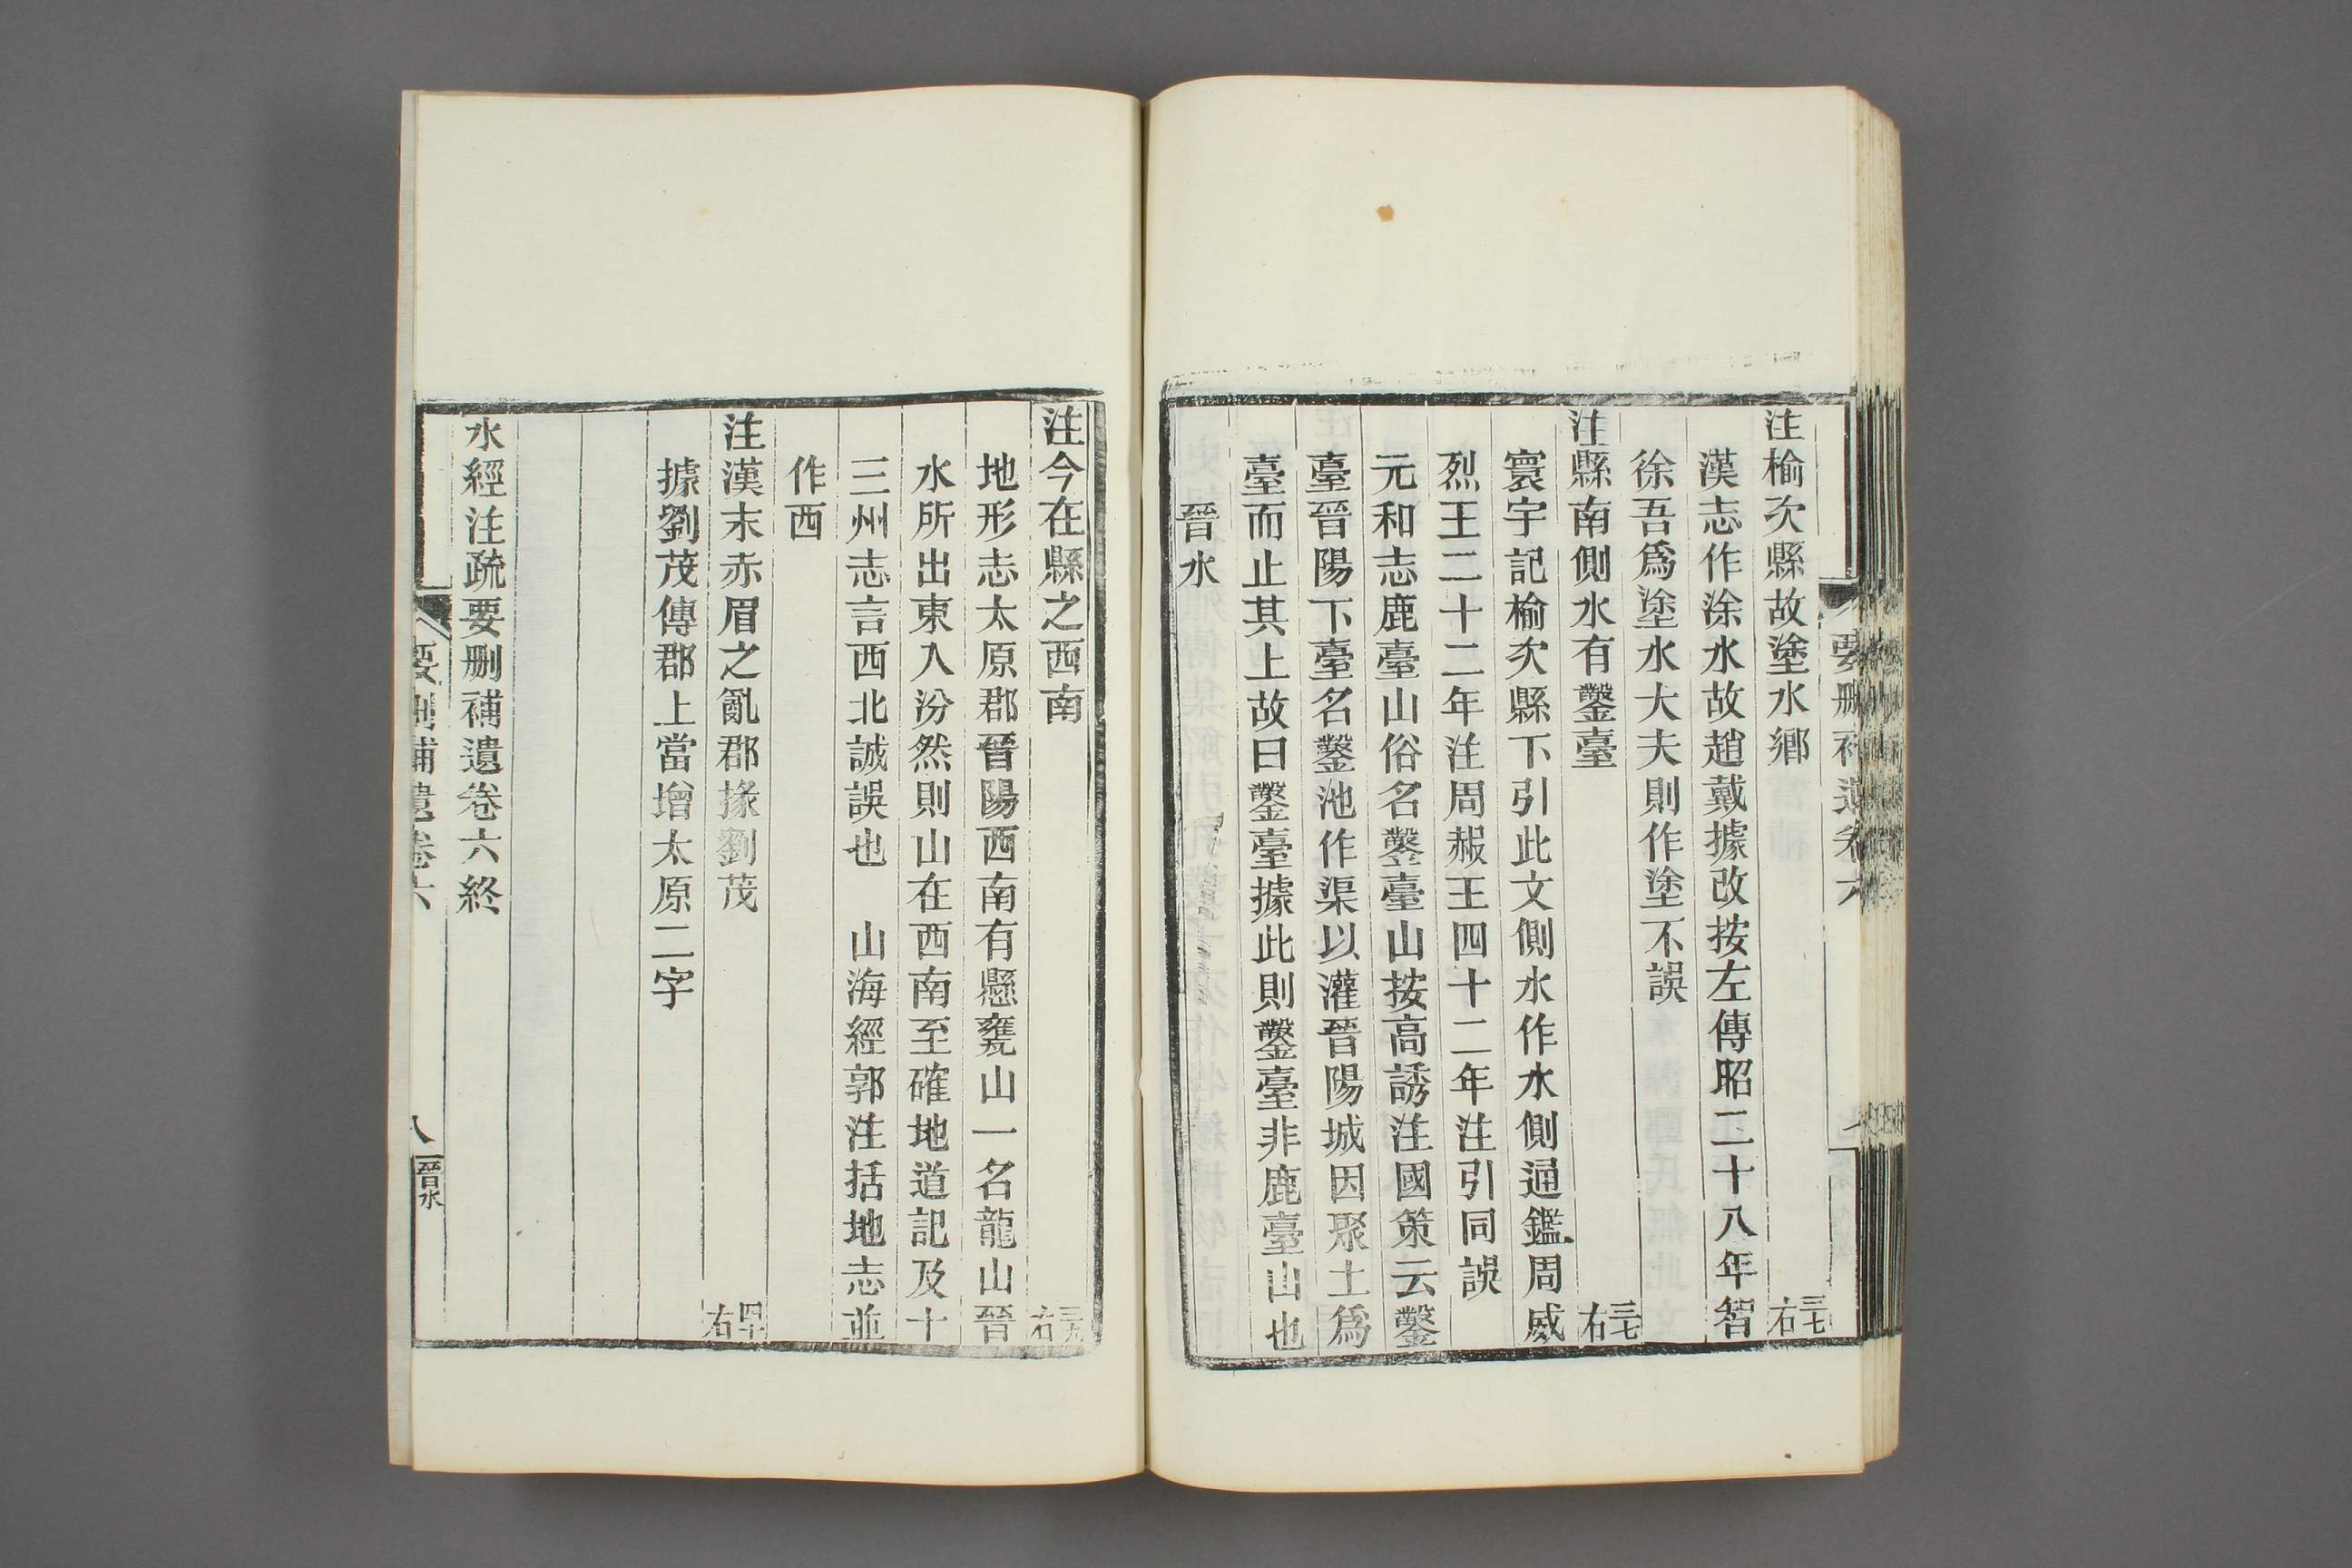 注榆次縣故塗水鄉 三七右
漢志作涂水故趙戴據改按左傳昭二十八年智
徐吾爲塗水大夫則作塗不誤
注縣南側水有鑿臺 三七右
寰宇記榆次縣下引此文側水作水側通鑑周威
烈王二十二年注周赧王四十二年注引同誤
元和志鹿臺山俗名鑿臺山按高誘注國策云鑿
臺晉陽下臺名鑿池作渠以灌晉陽城因聚土爲
臺而止其上故曰鑿臺據此則鑿臺非鹿臺山也
晉水
注今在縣之西南 三九右
地形志太原郡晉陽西南有懸甕山一名龍山晉
水所出東入汾然則山在西南至確地道記及十
三州志言西北誠誤也 山海經郭注括地志並
作西
注漢末赤眉之亂郡掾劉茂 四十右
據劉茂傳郡上當增太原二字
水經注疏要刪補遺卷六終
要刪補遺卷六
八 晉水